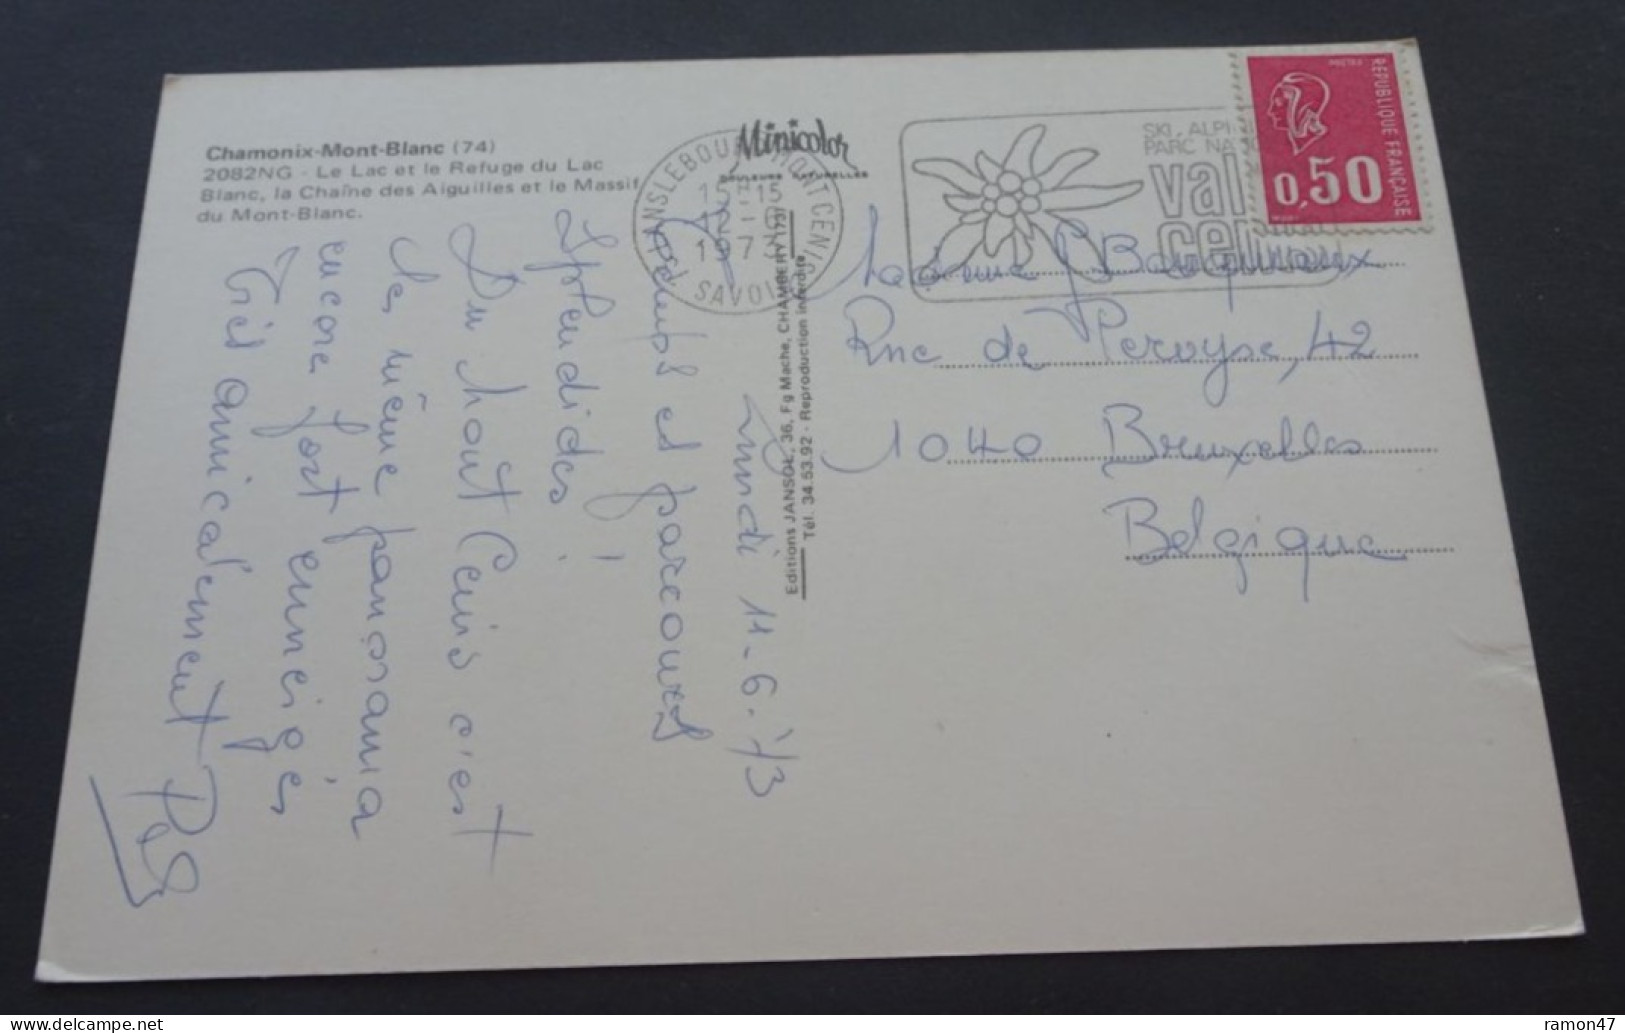 Chamonix-Mont-Blanc (74)
2082NG - Le Lac et le Refuge du Lac
Blanc, la Chaîne des Aiguilles et le Massif
du Mont-Blanc.
Minicolor
COULEURS NATURELLES
LANSLEBOURG MONT CENIS
15H15
12-6
1973
SAVOIE
SKI ALPI
PARC NA
val
cenis
REPUBLIQUE FRANÇAISE
0,50
Editions JANSOL, 36, Fg Mache, CHAMBERY (73)
Tél. 34.53.92 - Reproduction interdite
Lundi 11-6-73
Temps et parcours
splendides!
Du Mont Cenis c'est
les même panorama
encore fort enneigés
Très amicalement
Madame
Rue de Pervyse, 42
1040 Bruxelles
Belgique
ramon47